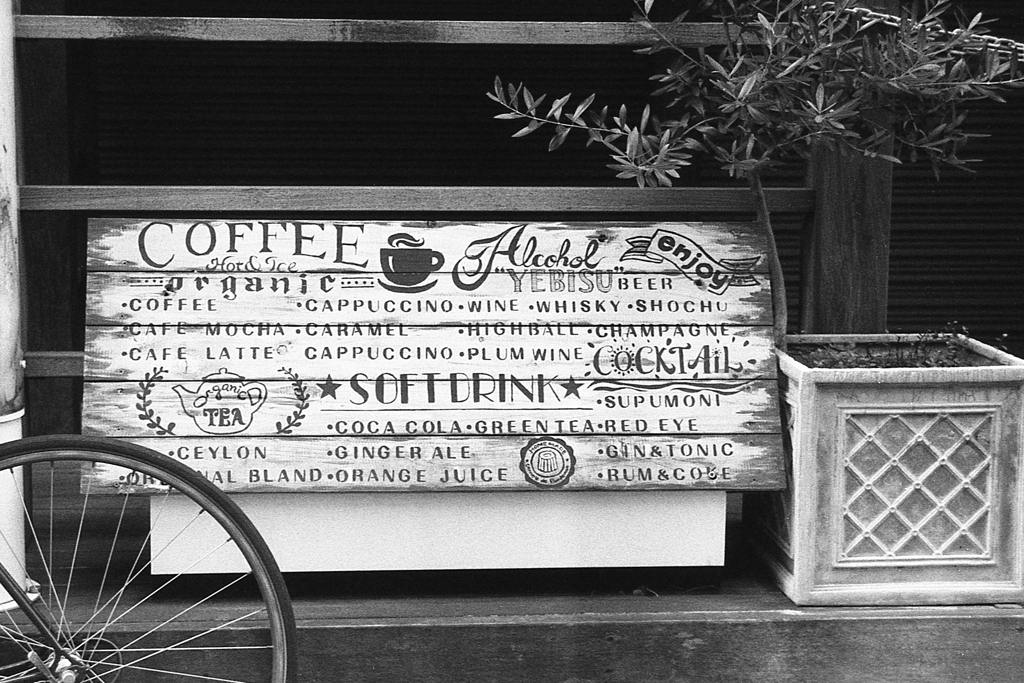 COFFEE
Hot & Ice
organic
•COFFEE •CAPPUCCINO
•CAFE MOCHA •CARAMEL
•CAFE LATTE CAPPUCCINO
Alcohol
enjoy
"YEBISU" BEER
•WINE •WHISKY •SHOCHU
•HIGHBALL •CHAMPAGNE
•PLUM WINE
COCKTAIL
•SUPUMONI
•RED EYE
•GIN&TONIC
•RUM&COKE
organic
TEA
•CEYLON
BLAND
★SOFTDRINK★
•COCA COLA •GREEN TEA
•GINGER ALE
•ORANGE JUICE